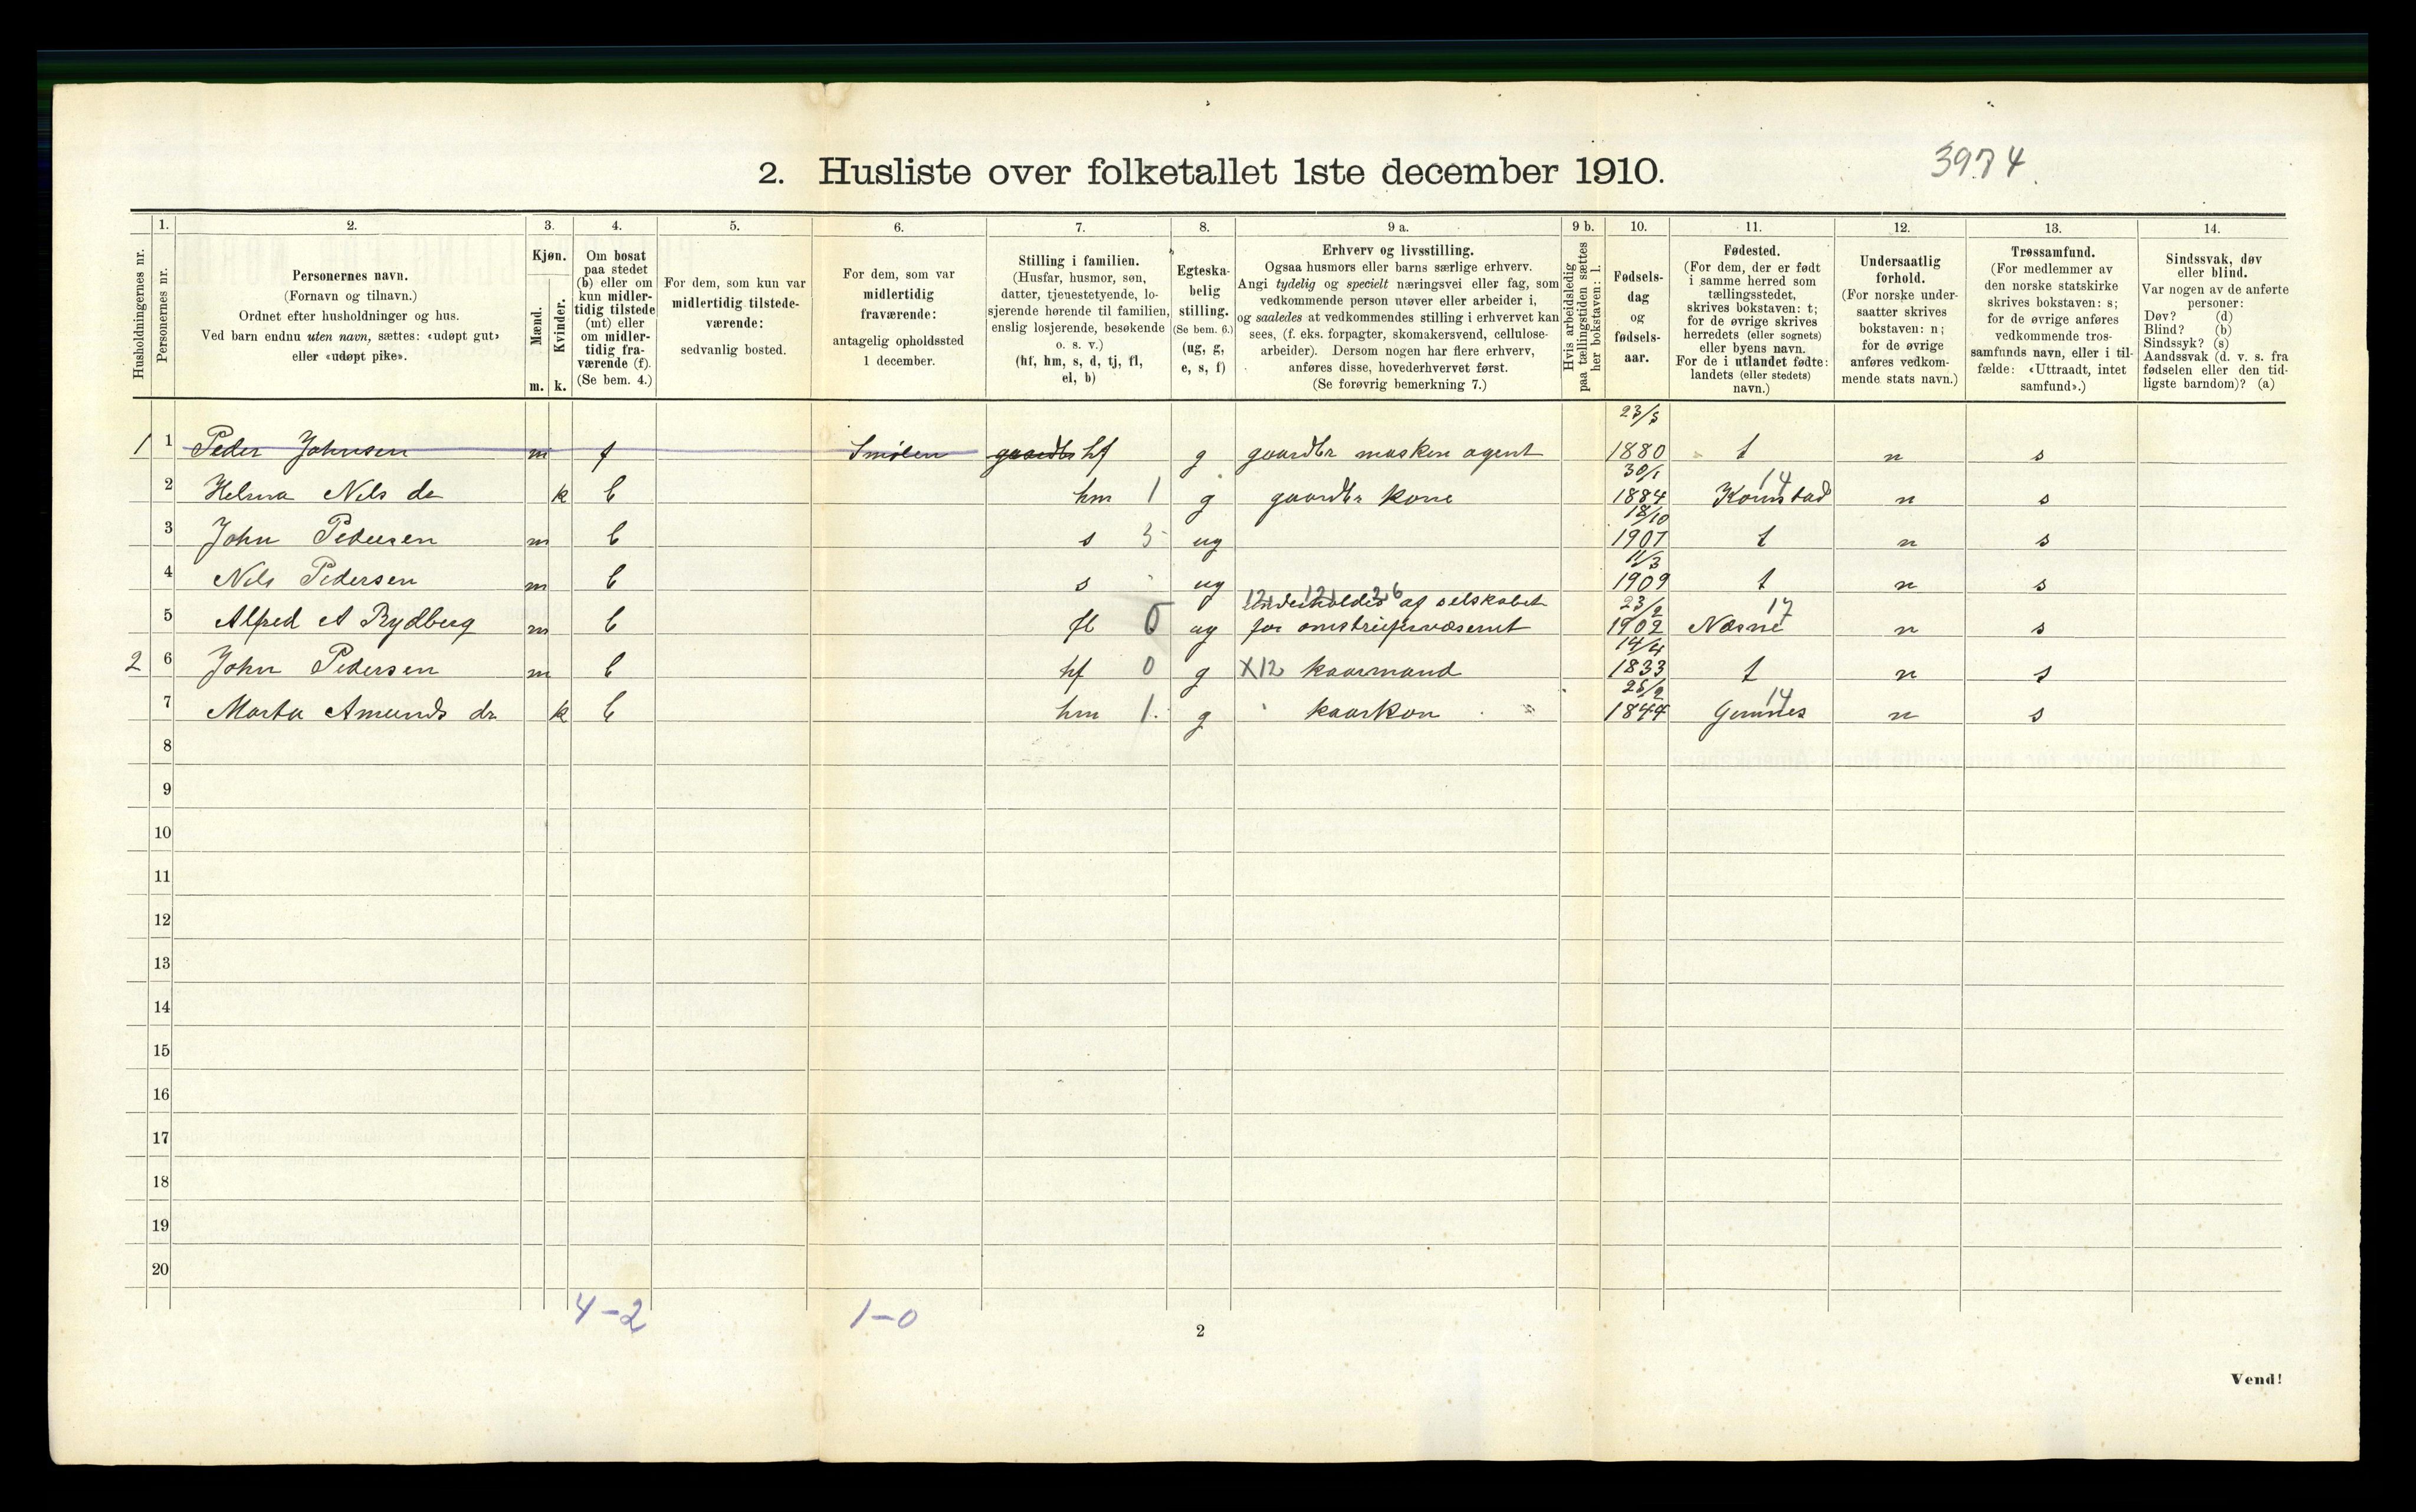 2. Husliste over folketallet 1ste december 1910.
3974
Husholdningernes nr.
1.
Personernes nr.
2.
Personernes navn.
(Fornavn og tilnavn.)
Ordnet efter husholdninger og hus.
Ved barn endnu uten navn, sættes: «udøpt gut»
eller «udøpt pike».
3.
Kjøn.
Mænd.
m.
Kvinder.
k.
4.
Om bosat
paa stedet
(b) eller om
kun midler-
tidig tilstede
(mt) eller
om midler-
tidig fra-
værende (f).
(Se bem. 4.)
5.
For dem, som kun var
midlertidig tilstede-
værende:
sedvanlig bosted.
6.
For dem, som var
midlertidig
fraværende:
antagelig opholdssted
1 december.
7.
Stilling i familien.
(Husfar, husmor, søn,
datter, tjenestetyende, lo-
sjerende hørende til familien,
enslig losjerende, besøkende
o. s. v.)
(hf, hm, s, d, tj, fl,
el, b)
8.
Egteska-
belig
stilling.
(Se bem. 6.)
(ug, g,
e, s, f)
9 a.
Erhverv og livsstilling.
Ogsaa husmors eller barns særlige erhverv.
Angi tydelig og specielt næringsvei eller fag, som
vedkommende person utøver eller arbeider i,
og saaledes at vedkommendes stilling i erhvervet kan
sees, (f. eks. forpagter, skomakersvend, cellulose-
arbeider). Dersom nogen har flere erhverv,
anføres disse, hovederhvervet først.
(Se forøvrig bemerkning 7.)
9 b.
Hvis arbeidsledig
paa tællingstiden sættes
her bokstaven: l.
10.
Fødsels-
dag
og
fødsels-
aar.
11.
Fødested.
(For dem, der er født
i samme herred som
tællingsstedet,
skrives bokstaven: t;
for de øvrige skrives
herredets (eller sognets)
eller byens navn.
For de i utlandet fødte:
landets (eller stedets)
navn.)
12.
Undersaatlig
forhold.
(For norske under-
saatter skrives
bokstaven: n;
for de øvrige
anføres vedkom-
mende stats navn.)
13.
Trossamfund.
(For medlemmer av
den norske statskirke
skrives bokstaven: s;
for de øvrige anføres
vedkommende tros-
samfunds navn, eller i til-
fælde: «Uttraadt, intet
samfund».)
14.
Sindssvak, døv
eller blind.
Var nogen av de anførte
personer:
Døv? (d)
Blind? (b)
Sindssyk? (s)
Aandssvak (d. v. s. fra
fødselen eller den tid-
ligste barndom)? (a)
1 1 Peder Johnsen m f Smølen gaardbr hf g gaardbr maskin agent 23/5 1880 t n s
2 Helma Nils da k b hm 1 g gaardbr kone 30/1 1884 14 Kornstad n s
3 John Pedersen m b s 3 ug 18/10 1907 t n s
4 Nils Pedersen m b s ug 11/3 1909 t n s
5 Alfred A Rydberg m b fl 0 ug 12, 121 26 Underholdes af selskabet
for omstreiferværsenet 23/2 1902 17 Næsne n s
2 6 John Pedersen m b hf 0 g X12 kaarmand 14/4 1833 t n s
7 Marta Amunds dr k b hm 1. g kaarkon 25/2 1844 14 Gjemnes n s
8
9
10
11
12
13
14
15
16
17
18
19
20
4-2
1-0
2
Vend!